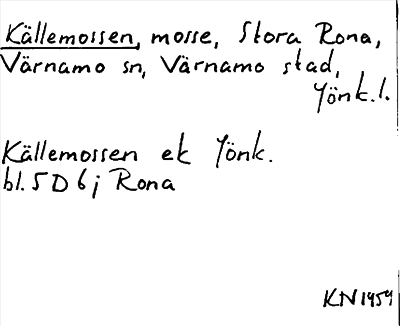 Källemossen, mosse, Stora Rona,
Värnamo sn, Värnamo stad,
Jönk.l.
Källemossen ek Jönk.
bl. 5 D 6 j Rona
KN 1959